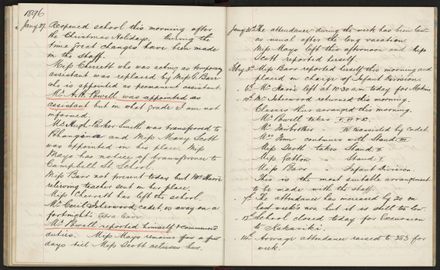 1896
Jany 27. Reopened school this morning after
the Christmas Holidays. During the
time great changes have been made
on the staff.
Miss Cherrett who was acting as temporary
assistant was replaced by Miss C. Barr
who is appointed as permanent assistant.
Mr. A. H. Powell was appointed as
assistant but in what grade I am not
informed.
Miss Parker Smith was transferred to
and Miss Mary Scott
was appointed in his place. Miss
Mayo has notice of transference to
Campbell St. School.
Miss Barr not present today but Mr. Harris
relieving teacher sent in his place.
Miss Cherrett has left the school.
Mr. Cecil Isherwood, cadet, is away on a
fortnight's leave.
Mr. Powell reported himself & commenced
duties. Miss Mayo remains for a few
days till Miss Scott relieves her.
Jany 31st The attendance during the week has been low
as usual after the long vacation.
Miss Mayo left this afternoon and Miss
Scott reported herself.
Feby 3rd Miss Barr reported herself this morning and
placed in charge of Infant Division
Mr. Harris left at 10.30 am today for
10th Mr. Isherwood returned this morning.
Classes thus arranged this morning.
Mr Powell takes
Mr. IV assisted by Cadet.
Miss continues with Stand III
Miss Scott takes Stand II
Miss Stand I
Miss Barr Infant Division.
This is the most suitable arrangement
to be made with the staff.
7th The attendance has increased by 20 on
last week's av. but it is still too low.
School closed today for Excursion
to
14th Average attendance raised to 253 for
week.